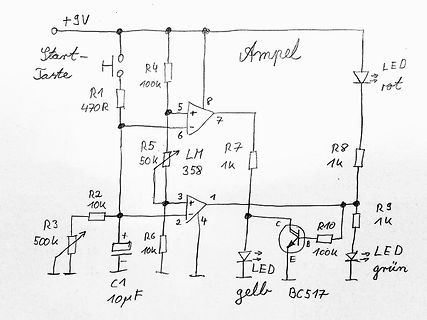 +9V
Ampel
Start-
Taste
R1
470R
R4
100k
LED
rot
5
+
8
7
6
-
R5
50k
LM
358
R7
1k
R8
1k
R2
10k
3
+
1
2
-
4
R9
1k
R3
500k
+
-
C1
10µF
R6
10k
C
B
E
R10
100k
LED
gelb
BC517
LED
grün